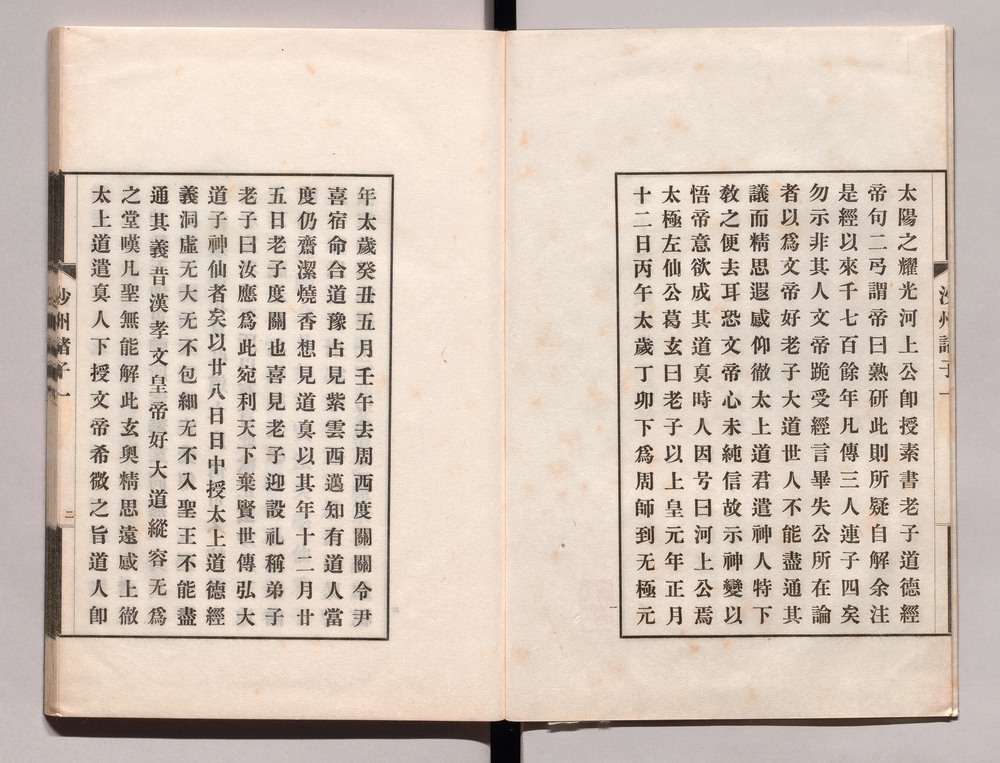 太陽之耀光河上公卽授素書老子道德經
帝句二弓謂帝曰熟研此則所疑自解余注
是經以來千七百餘年凡傳三人連子四矣
勿示非其人文帝跪受經言畢失公所在論
者以爲文帝好老子大道世人不能盡通其
議而精思遐感仰徹太上道君遣神人特下
敎之便去耳恐文帝心未純信故示神變以
悟帝意欲成其道真時人因号曰河上公焉
太極左仙公葛玄曰老子以上皇元年正月
十二日丙午太歲丁卯下爲周師到无極元
一
年太歲癸丑五月壬午去周西度關關令尹
喜宿命合道豫占見紫雲西邁知有道人當
度仍齋潔燒香想見道真以其年十二月廿
五日老子度關也喜見老子迎設礼稱弟子
老子曰汝應爲此宛利天下棄賢世傳弘大
道子神仙者矣以廿八日日中授太上道德經
義洞虛无大无不包細无不入聖王不能盡
通其義昔漢孝文皇帝好大道縱容无爲
之堂嘆凡聖無能解此玄奧精思遠感上徹
太上道遣真人下授文帝希微之旨道人卽
沙州諸子一
二